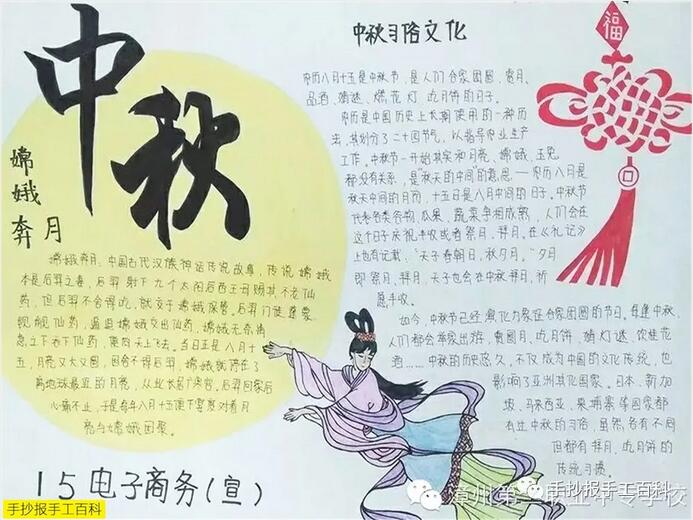 中秋
嫦娥
奔月
嫦娥奔月：中国古代汉族神话传说故事，传说嫦娥
本是后羿之妻，后羿射下九个太阳后西王母赐其不老仙
药，但后羿不舍得吃，就交于嫦娥保管。后羿门徒蓬蒙
觊觎仙药，逼迫嫦娥交出仙药，嫦娥无奈情
急之下吞下仙药，便向天上飞去。当日正是八月十
五，月亮又大又圆，因舍不得后羿，嫦娥就停在了
离地球最近的月亮，从此长居广寒宫。后羿回家后
心痛不止，于是每年八月十五便下宴席对着月
亮与嫦娥团聚。
15电子商务（宣）
中秋习俗文化
农历八月十五是中秋节，是人们合家团圆、赏月、
品酒、猜谜、燃花灯、吃月饼的日子。
农历是中国历史上长期使用的一种历
法，其划分了二十四节气，以指导农业生产
工作。中秋节一开始其实和月亮、嫦娥、玉兔
都没有关系，是秋天的中间的意思——农历八月是
秋天中间的月份，十五日是八月中间的日子。中秋节
代表各类谷物、瓜果、蔬菜争相成熟，人们会在
这个日子庆祝丰收或者祭月、拜月。在《礼记》
上也有记载，“天子春朝日，秋夕月。”夕月
即祭月、拜月，天子也会在中秋拜月，祈
愿丰收。
如今，中秋节已经演化为家在合家团圆的节日。每逢中秋，
人们都会举家出游、赏圆月、吃月饼、猜灯谜、饮桂花
酒……中秋的历史悠久，不仅成为中国的文化传统，也
影响了亚洲其他国家。日本、新加
坡、马来西亚、柬埔寨等国家都
有过中秋的习俗，虽然各有不同
但都有拜月、吃月饼的
传统习惯。
福
手抄报手工百科
手抄报手工百科